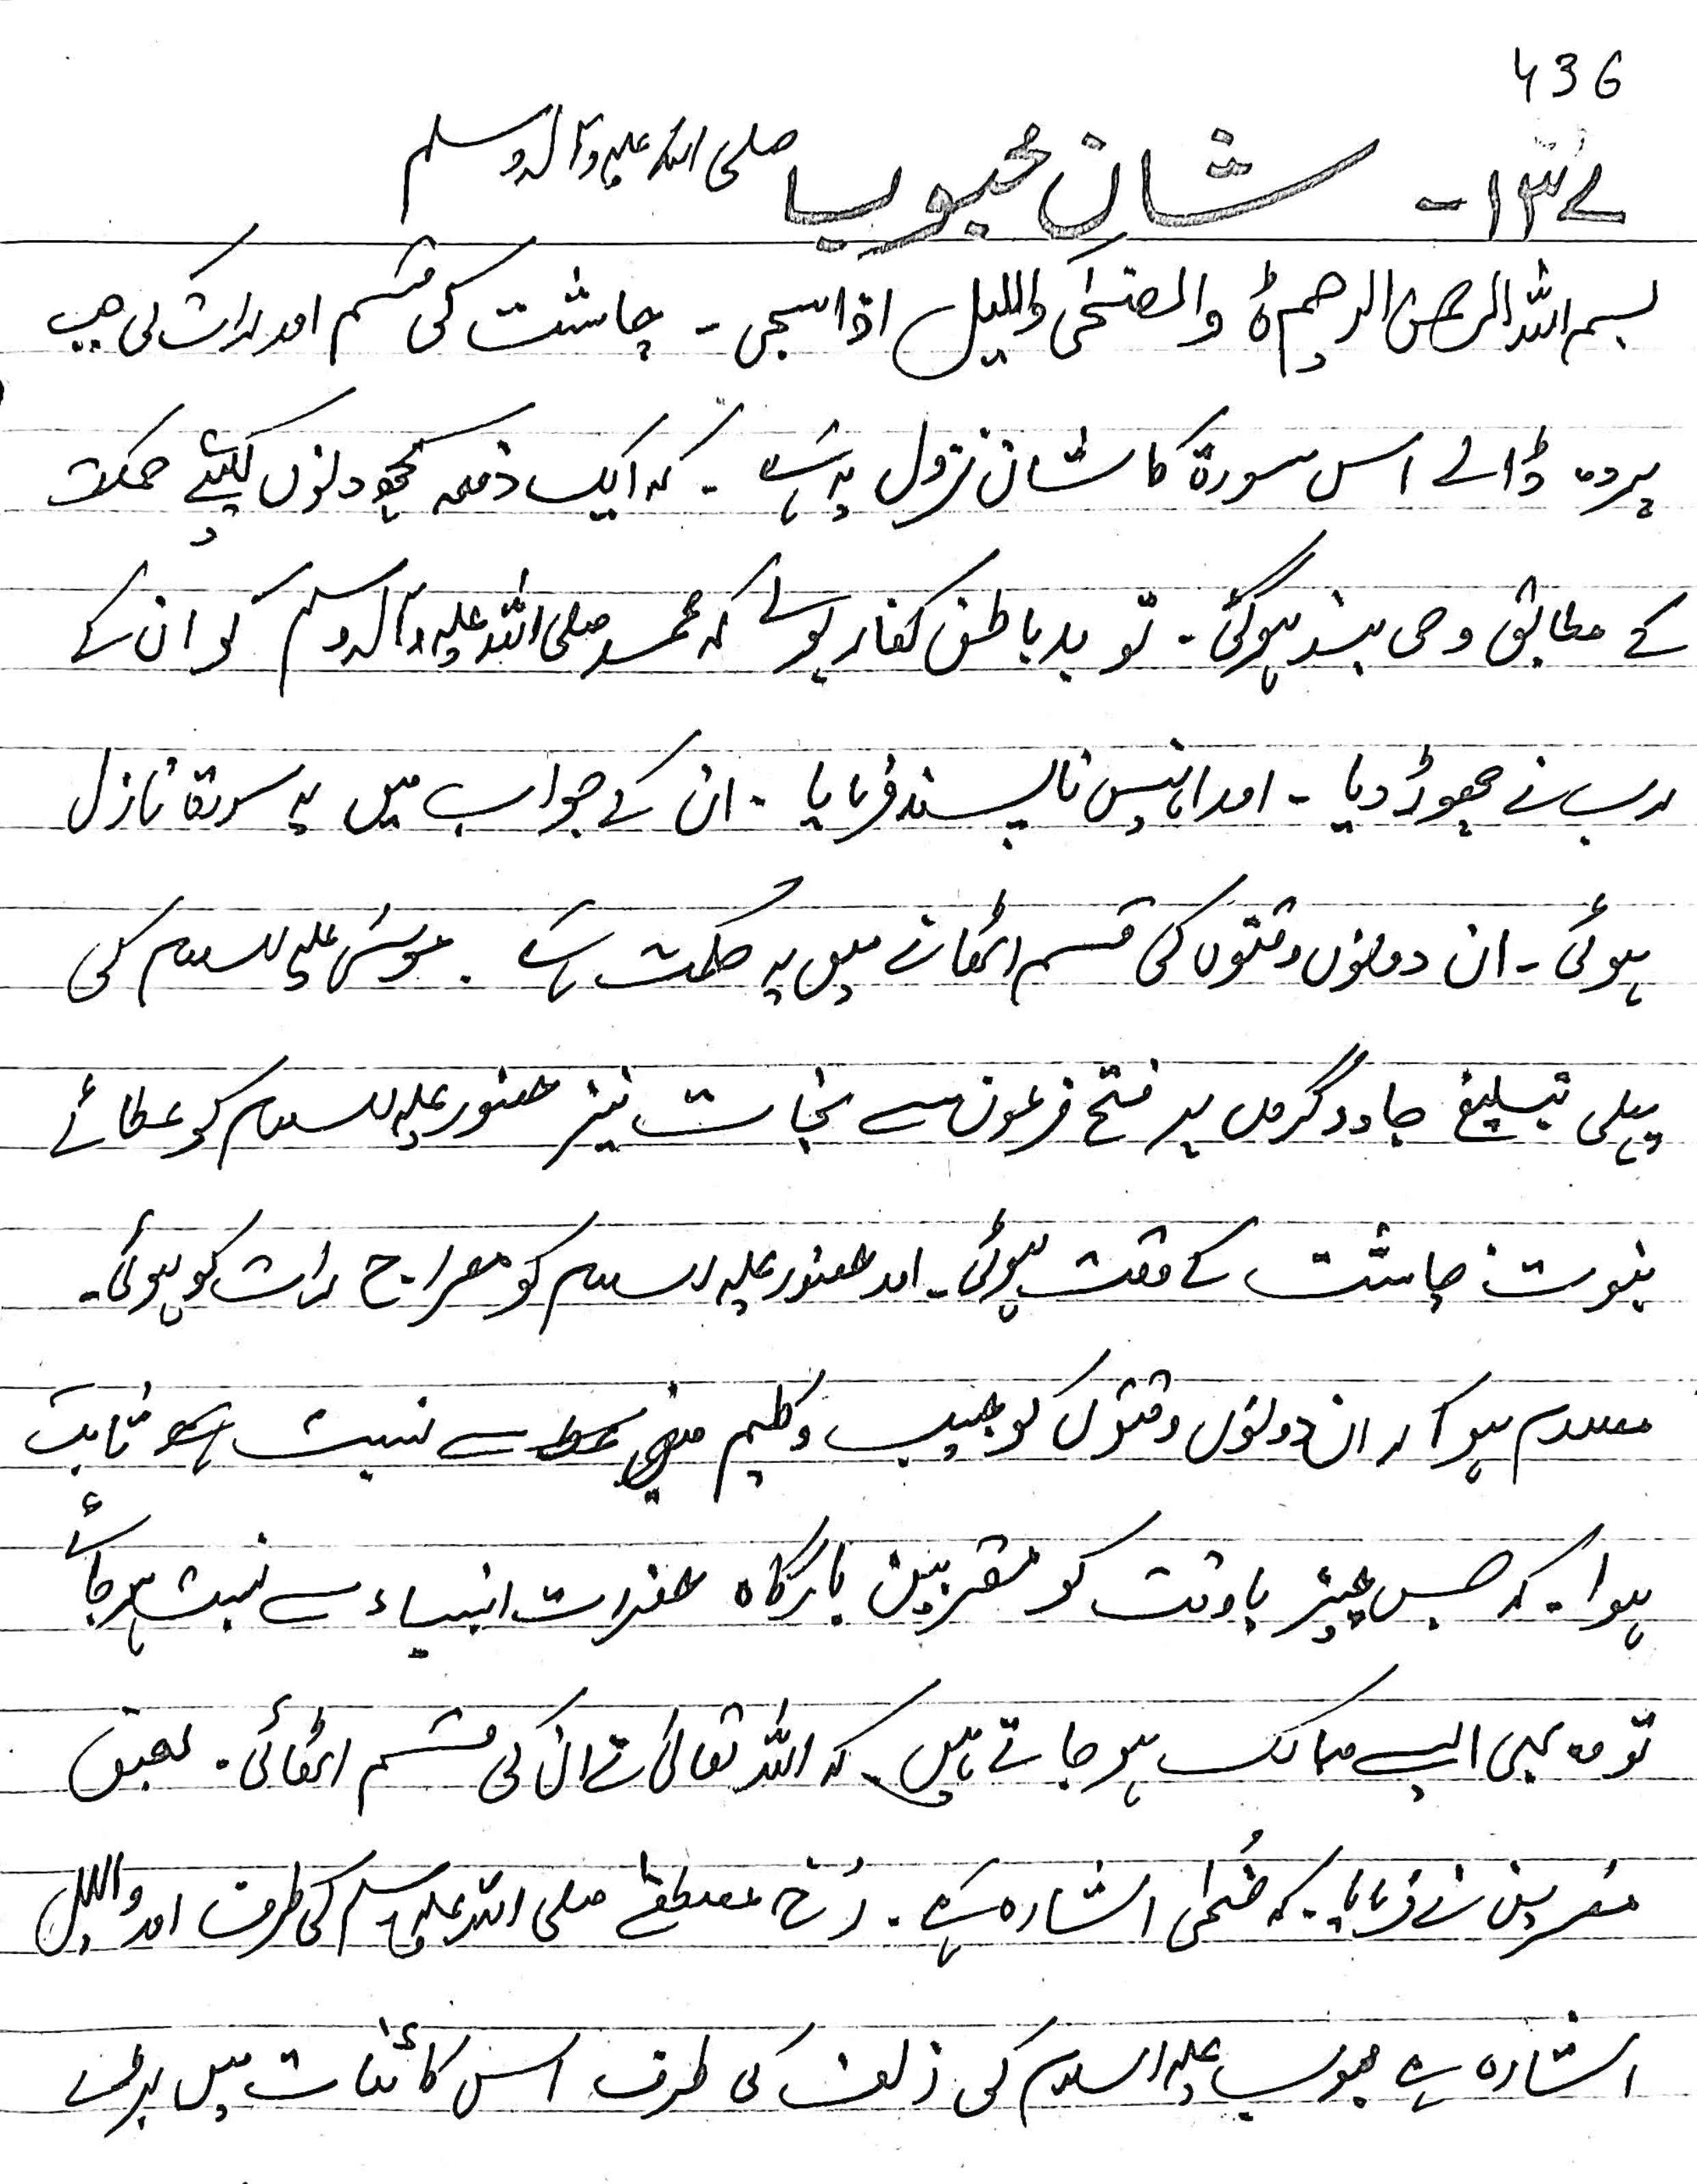 436
۱۳۷- شان محبوب صلی اللہ علیہ وآلہ وسلم
بسم اللہ الرحمن الرحیم ہ والضحیٰ واللیل اذا سجیٰ - چاشت کی قسم اور رات کی جب
پردہ ڈالے اس سورۃ کا شان نزول یہ ہے - کہ ایک دفعہ کچھ دنوں کیلئے حکمت
کے مطابق وحی بند ہو گئی - تو بد باطن کفار بولے کہ محمد صلی اللہ علیہ وآلہ وسلم کو ان کے
رب نے چھوڑ دیا - اور انہیں ناپسند فرمایا - ان کے جواب میں یہ سورۃ نازل
ہوئی - ان دونوں وقتوں کی قسم اٹھانے میں یہ حکمت ہے - موسیٰ علیہ السلام کی
پہلی تبلیغ جادوگروں پر فتح فرعون سے نجات نیز حضور علیہ السلام کو عطائے
نبوت چاشت کے وقت ہوئی - اور حضور علیہ السلام کو معراج رات کو ہوئی -
معلوم ہوا کہ ان دونوں وقتوں کو حبیب و کلیم سے نسبت ہے ثابت
ہوا - کہ جس چیز یا وقت کو مقربین بارگاہ حضرات انبیاء سے نسبت ہو جائے
تو وہ بھی ایسے مبارک ہو جاتے ہیں - کہ اللہ تعالیٰ نے ان کی قسم اٹھائی - بعض
مفسرین نے فرمایا - کہ ضُحٰی اشارہ ہے - رُخ مصطفےٰ صلی اللہ علیہ وسلم کی طرف اور واللیل
اشارہ ہے محبوب علیہ السلام کی زلف کی طرف اس کائنات میں بڑے